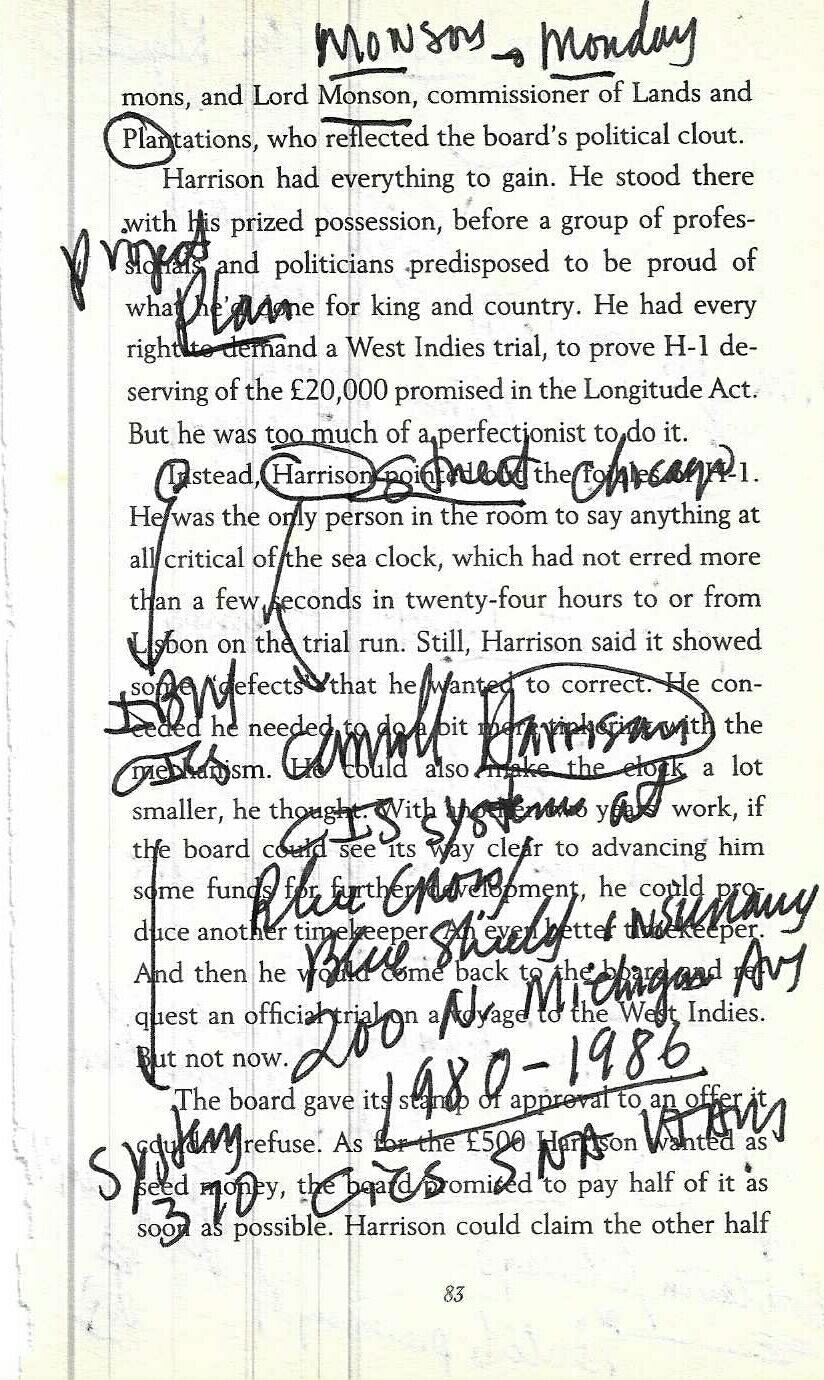 MONSON → Monday
mons, and Lord Monson, commissioner of Lands and
Plantations, who reflected the board's political clout.
Harrison had everything to gain. He stood there
with his prized possession, before a group of profes-
project
sionals and politicians predisposed to be proud of
Plan
what he'd done for king and country. He had every
right to demand a West Indies trial, to prove H-1 de-
serving of the £20,000 promised in the Longitude Act.
But he was too much of a perfectionist to do it.
Instead, Harrison pointed out the foibles of H-1.
street Chicago
He was the only person in the room to say anything at
all critical of the sea clock, which had not erred more
than a few seconds in twenty-four hours to or from
Lisbon on the trial run. Still, Harrison said it showed
some "defects" that he wanted to correct. He con-
IBM
ceded he needed to do a bit more tinkering with the
CICS Carroll Harrison
mechanism. He could also make the clock a lot
smaller, he thought. With another two years' work, if
systems at
the board could see its way clear to advancing him
Blue Cross
some funds for further development, he could pro-
duce another timekeeper. An even better timekeeper.
Blue Shield insurance
And then he would come back to the board and re-
200 N. Michigan Ave
quest an official trial on a voyage to the West Indies.
But not now.
1980-1986
The board gave its stamp of approval to an offer it
System
couldn't refuse. As for the £500 Harrison wanted as
370 CICS SNA VTAM
seed money, the board promised to pay half of it as
soon as possible. Harrison could claim the other half
83